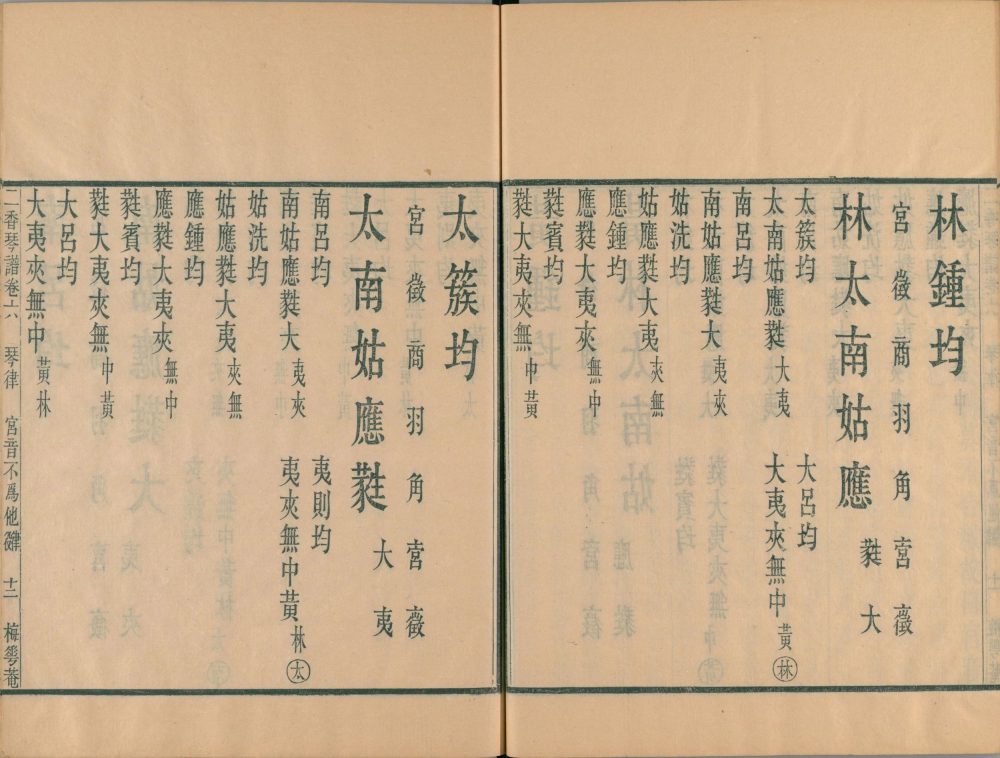 林鍾均
宮徵商羽角宮徵
林太南姑應蕤大
太簇均 大呂均
太南姑應蕤大夷 大夷夾無中黃林
南呂均
南姑應蕤大夷夾
姑洗均
姑應蕤大夷夾無
應鍾均
應蕤大夷夾無中
蕤賓均
蕤大夷夾無中黃
太簇均
宮徵商羽角宮徵
太南姑應蕤大夷
南呂均 夷則均
南姑應蕤大夷夾 夷夾無中黃林太
姑洗均
姑應蕤大夷夾無
應鍾均
應蕤大夷夾無中
蕤賓均
蕤大夷夾無中黃
大呂均
大夷夾無中黃林
二香琴譜卷之六 琴律 宮音不爲他 十二 梅華菴